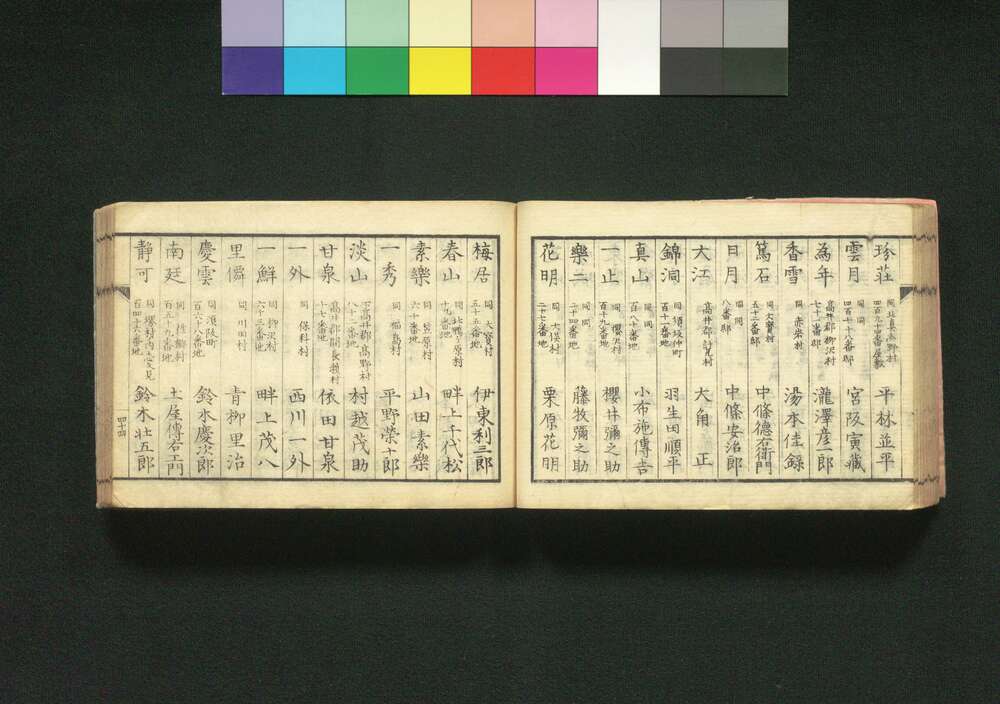 珍荘 同北真志野村 四百九十四番屋敷 平林並平
雲月 同同 四百七十八番邸 宮阪寅藏
為年 高井郡柳沢村 七十二番邸 瀧澤彦一郎
香雪 同赤岩村 湯本佳録
篤石 同大寳村 五十三番邸 中條德右衛門
日月 同同 八番邸 中條安治郎
大江 高井郡 大角正
錦洞 同須坂仲町 百十一番地 羽生田順平
真山 同同 百八十番地 小布施傳吉
一止 同櫻沢村 百十九番地 櫻井彌之助
樂二 同同 二十四番地 藤牧彌之助
花明 同大俣村 二十七番地 栗原花明
梅居 同大寳村 五十五番地 伊東利三郎
春山 同北鴨ヶ原村 十九番地 畔上千代松
素樂 同菅原村 六十番地 山田素樂
一秀 同福島村 平野榮十郎
淡山 下高井郡高野村 八十二番地 村越茂助
甘泉 高井郡間長瀬村 十七番地 依田甘泉
一外 同保科村 西川一外
一鮮 同柳沢村 六十三番地 畔上茂八
里僊 同川田村 青柳里治
慶雲 同港町 百六十八番地 鈴木慶次郎
南廷 同桂郷村 百五十九番地 土屋傳右エ門
静可 百四十六番地 鈴木壮五郎
四十四